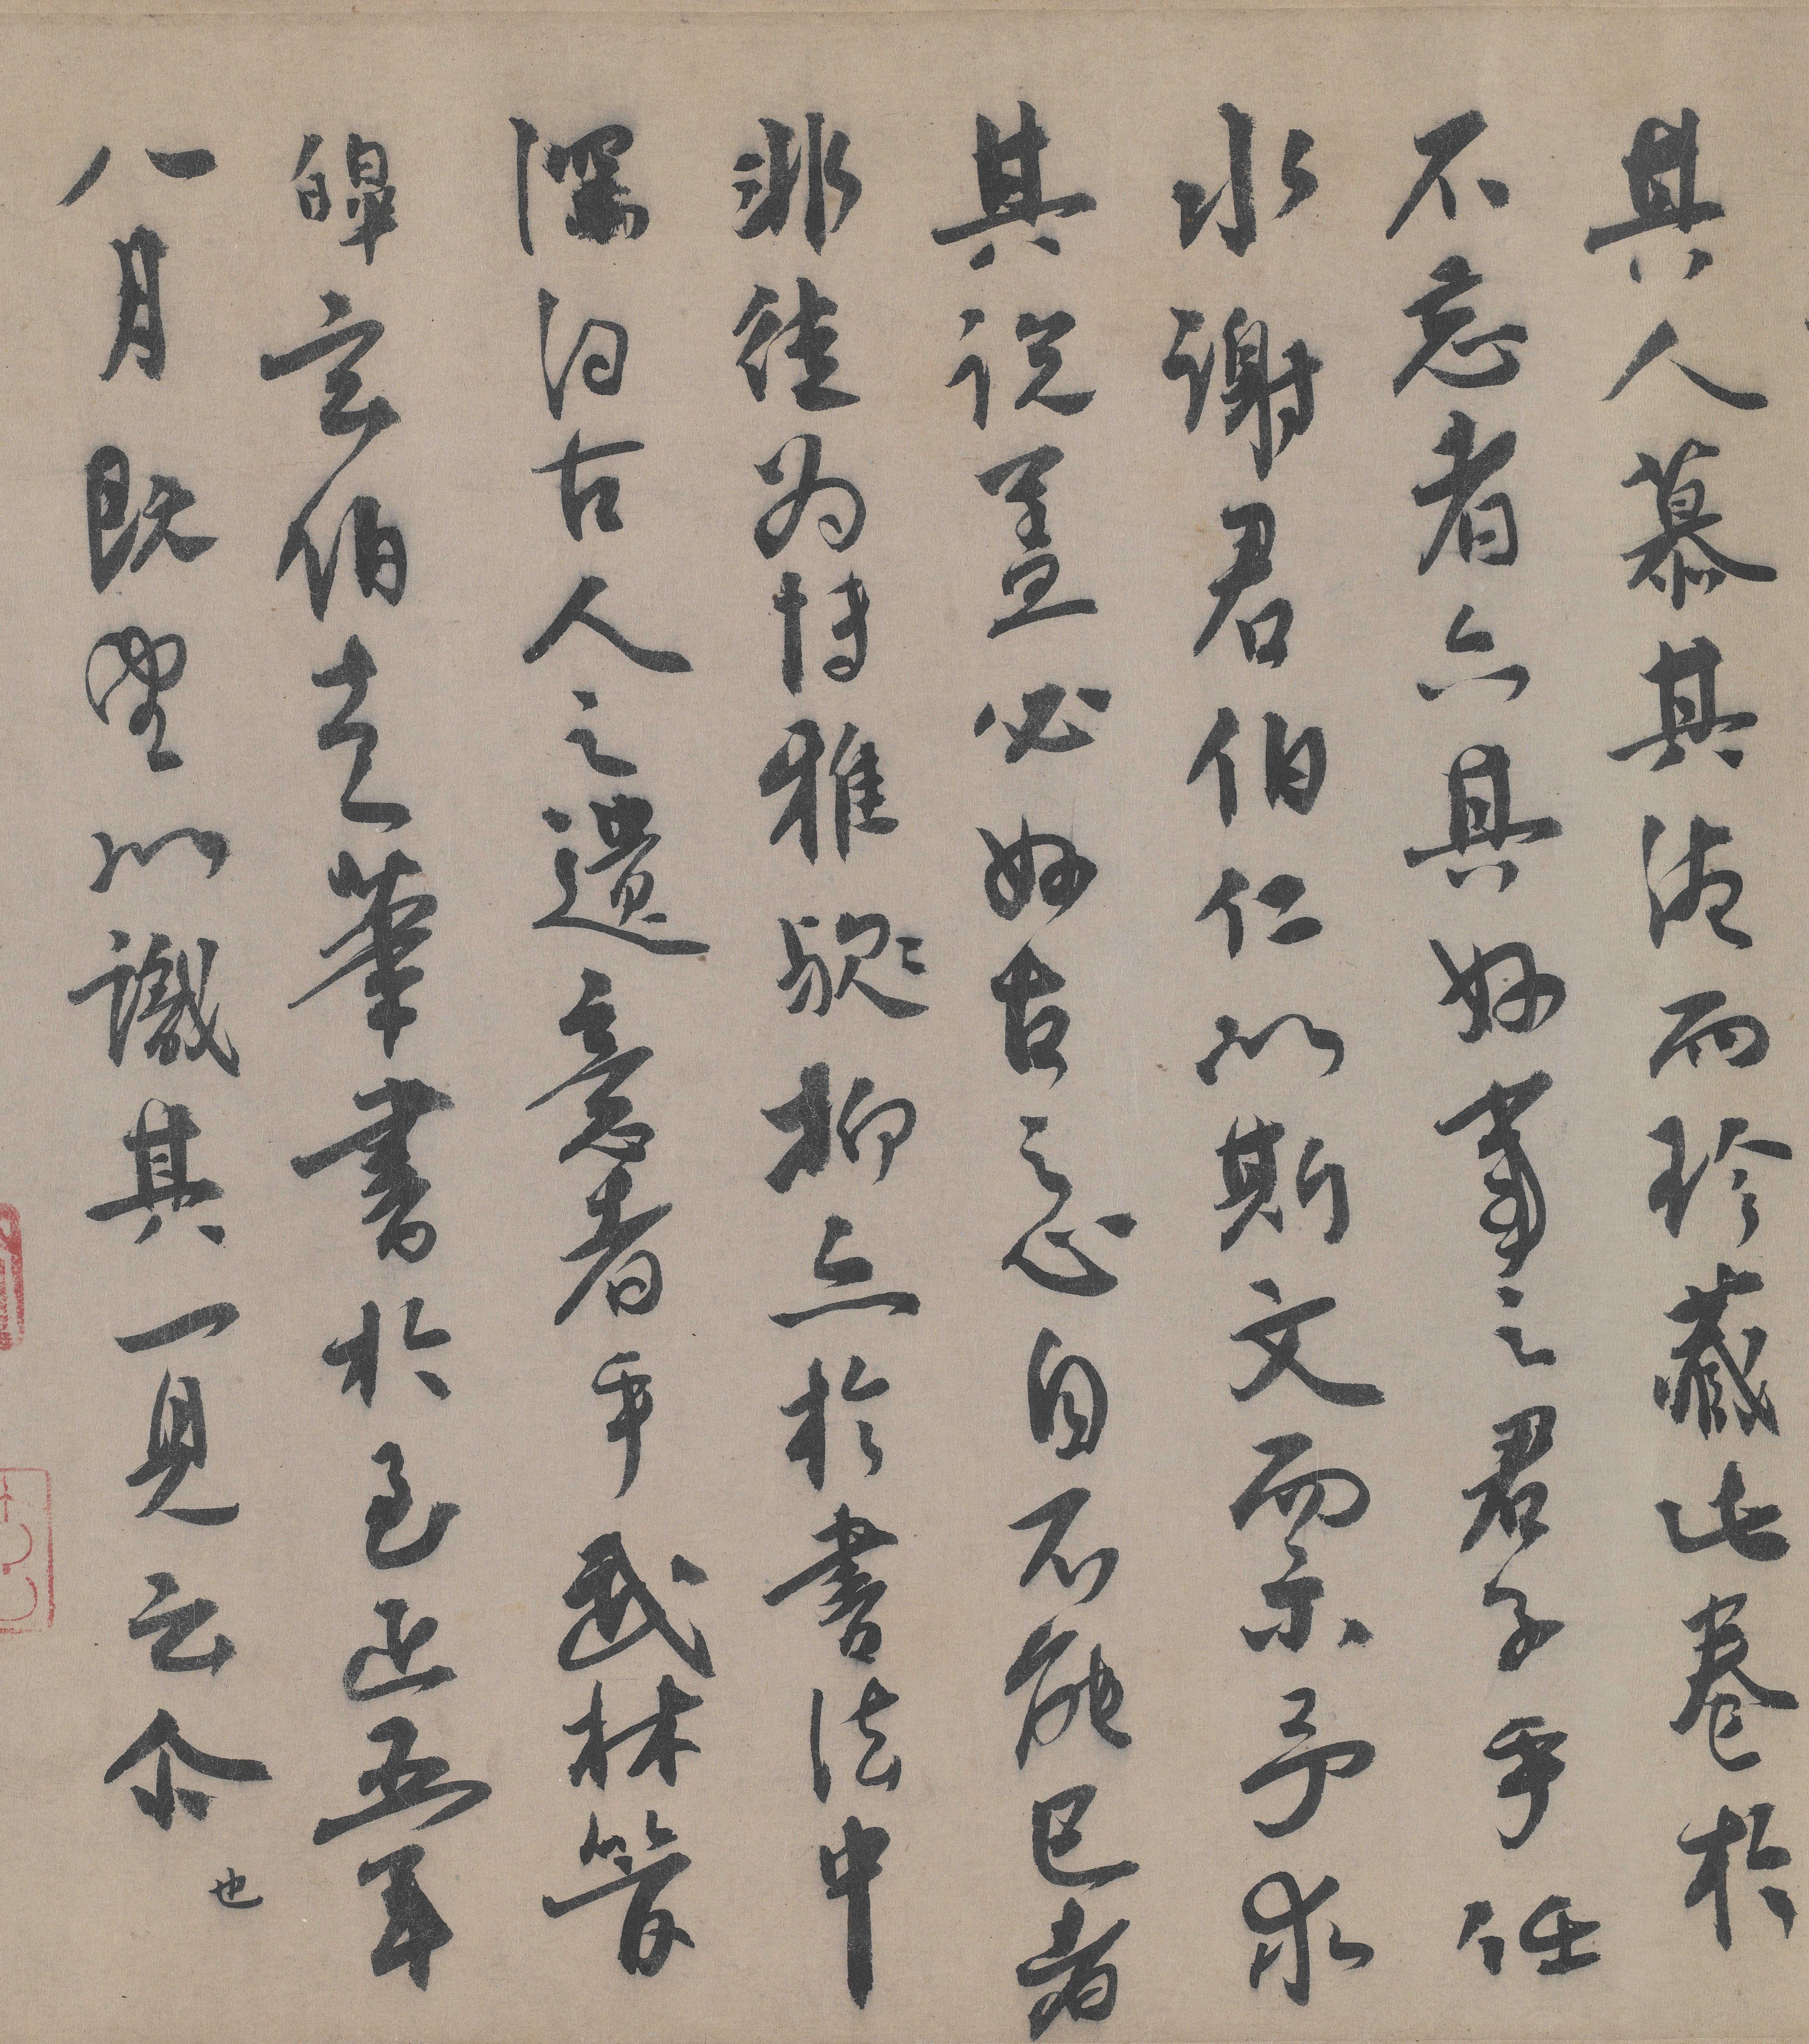 其人慕其德而珍藏此卷於
不忘者亦其好事之君子乎任
水謝君伯仁以斯文而示予求
其說盖必好古之心自不能已者
非徒為博雅貌抑亦於書法中
深得古人之遺意者乎武林管
皞玄伯走筆書於至正五年
八月既望以識其一見云尒也